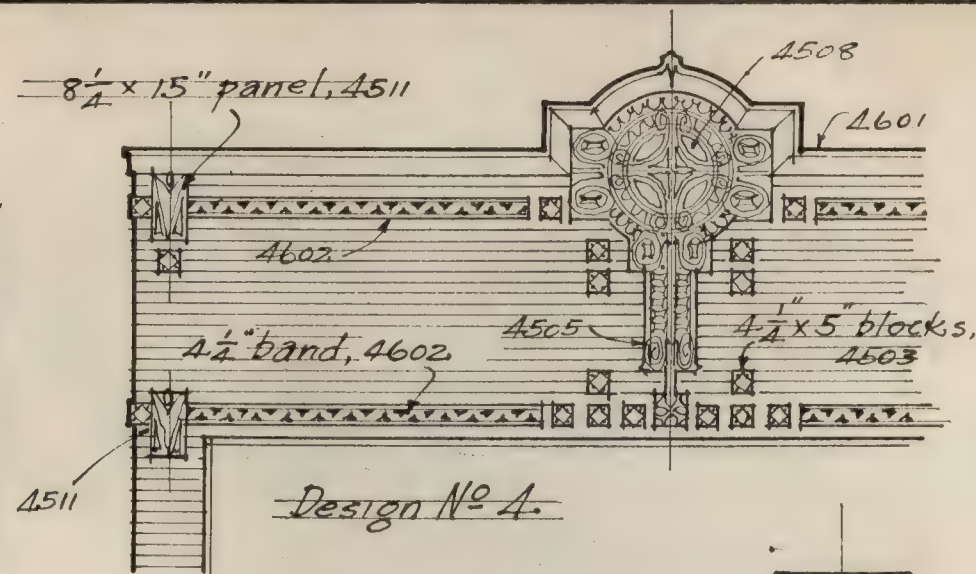 8 1/4 × 15" panel, 4511
4508
4601
4602
4505
4 1/4" × 5" blocks,
4503
4 1/4" band, 4602
4511
Design Nº 4.